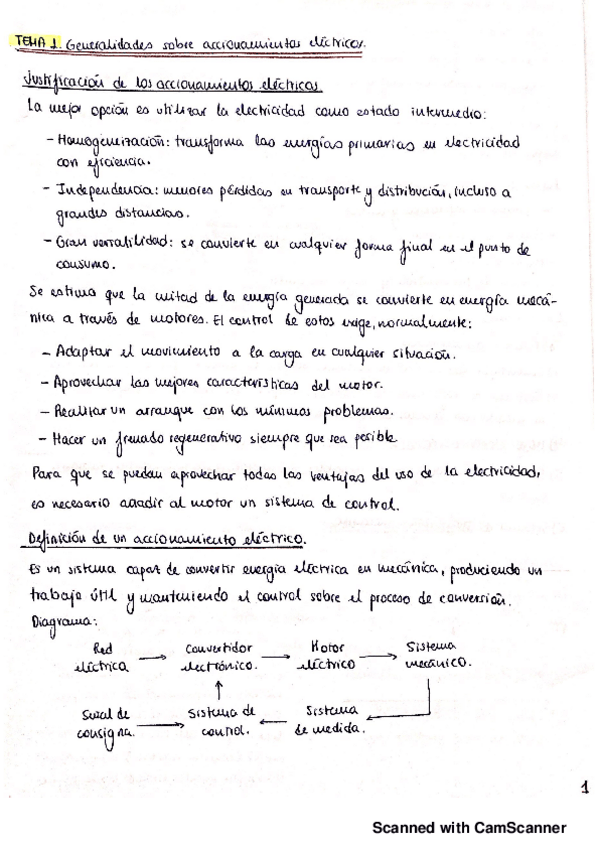 TEMA 1. Generalidades sobre accionamientos eléctricos.
Justificación de los accionamientos eléctricos
La mejor opción es utilizar la electricidad como estado intermedio:
- Homogeneización: transforma las energías primarias en electricidad
con eficiencia.
- Independencia: menores pérdidas en transporte y distribución, incluso a
grandes distancias.
- Gran versatilidad: se convierte en cualquier forma final en el punto de
consumo.
Se estima que la mitad de la energía generada se convierte en energía mecá-
nica a través de motores. El control de estos exige, normalmente:
- Adaptar el movimiento a la carga en cualquier situación.
- Aprovechar las mejores características del motor.
- Realizar un arranque con los mínimos problemas.
- Hacer un frenado regenerativo siempre que sea posible
Para que se puedan aprovechar todas las ventajas del uso de la electricidad,
es necesario añadir al motor un sistema de control.
Definición de un accionamiento eléctrico.
Es un sistema capaz de convertir energía eléctrica en mecánica, produciendo un
trabajo útil y manteniendo el control sobre el proceso de conversión.
Diagrama:
Red eléctrica → Convertidor electrónico. → Motor eléctrico → Sistema mecánico.
Señal de consigna. → Sistema de control. ← Sistema de medida.
1
Scanned with CamScanner